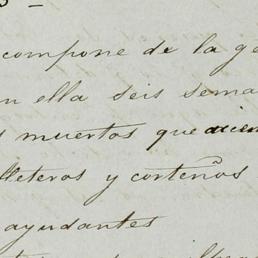 compone de la ge
n ella seis sema
s muertos que
lleteros y corteños
ayudantes